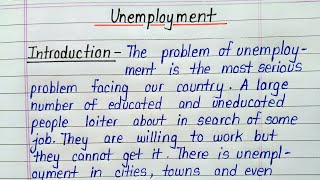 Unemployment
Introduction - The problem of unemploy-
ment is the most serious
problem facing our country. A large
number of educated and uneducated
people loiter about in search of some
job. They are willing to work but
they cannot get it. There is unempl-
oyment in cities, towns and even